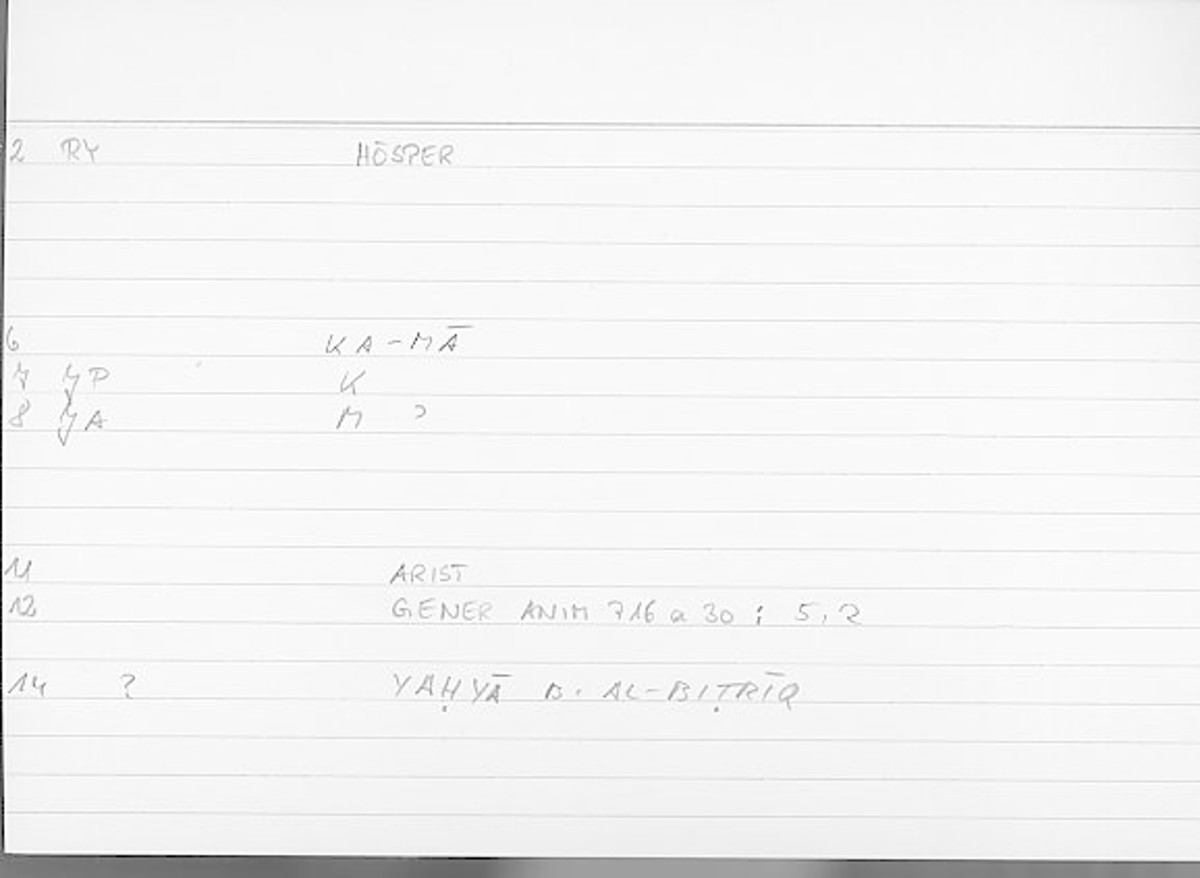 2 RY HŌSPER
6 KA-MĀ
7 JP K
8 JA M ɔ
11 ARIST
12 GENER ANIM 716 a 30 ; 5,2
14 ? YAḤYĀ B. AL-BIṬRĪQ